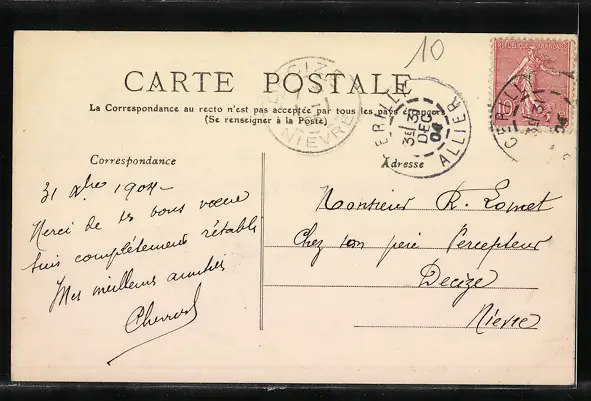 10
RÉPUBLIQUE FRANÇAISE
10
CARTE POSTALE
La Correspondance au recto n'est pas acceptée par tous les pays étrangers
(Se renseigner à la Poste)
DECIZE
NIEVRE
CERILLY
3E 31
DEC
04
ALLIER
CERILLY
3E 31
04
Correspondance
31 Xbre 1904
Merci de vos bons vœux
suis complètement rétabli
Mes meilleures amitiés
Adresse
Monsieur R. Lomet
Chez son père Percepteur
Decize
Nièvre